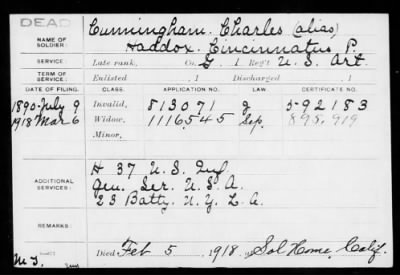 DEAD
NAME OF SOLDIER: Cunningham, Charles (alias)
Haddox, Cincinnatus P.
SERVICE: Late rank, Co. G , 1 Reg't U. S. Art.
TERM OF SERVICE: Enlisted , 1 Discharged , 1
DATE OF FILING. CLASS. APPLICATION NO. LAW. CERTIFICATE NO.
1890-July 9 Invalid, 813071 g 592183
1918 Mar 6 Widow, 1116545 Sep. 895,919
Minor,
ADDITIONAL SERVICES: H 37 U. S. Inf
Gen. Ser. U. S. A.
23 Batty. N. Y. L. A.
REMARKS:
Died Feb 5 , 1918, Sol Home, Calif.